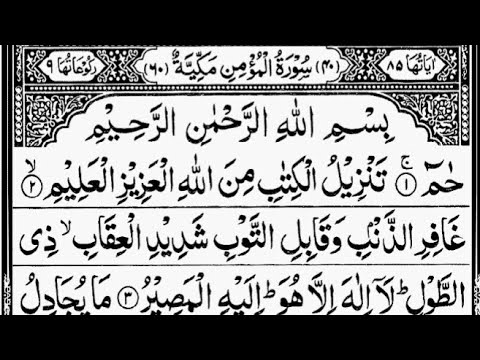 اٰیَاتُهَا ٨٥ (٤٠) سُوْرَةُ الْمُؤْمِنِ مَكِّیَّةٌ (٦٠) رُكُوْعَاتُهَا ٩
بِسْمِ اللهِ الرَّحْمٰنِ الرَّحِیْمِ
حٰمٓ ۚ﴿١﴾ تَنْزِیْلُ الْكِتٰبِ مِنَ اللهِ الْعَزِیْزِ الْعَلِیْمِ ۙ﴿٢﴾
غَافِرِ الذَّنْۢبِ وَقَابِلِ التَّوْبِ شَدِیْدِ الْعِقَابِ ۙ ذِی
الطَّوْلِ ؕ لَاۤ اِلٰهَ اِلَّا هُوَ ؕ اِلَیْهِ الْمَصِیْرُ ﴿٣﴾ مَا یُجَادِلُ